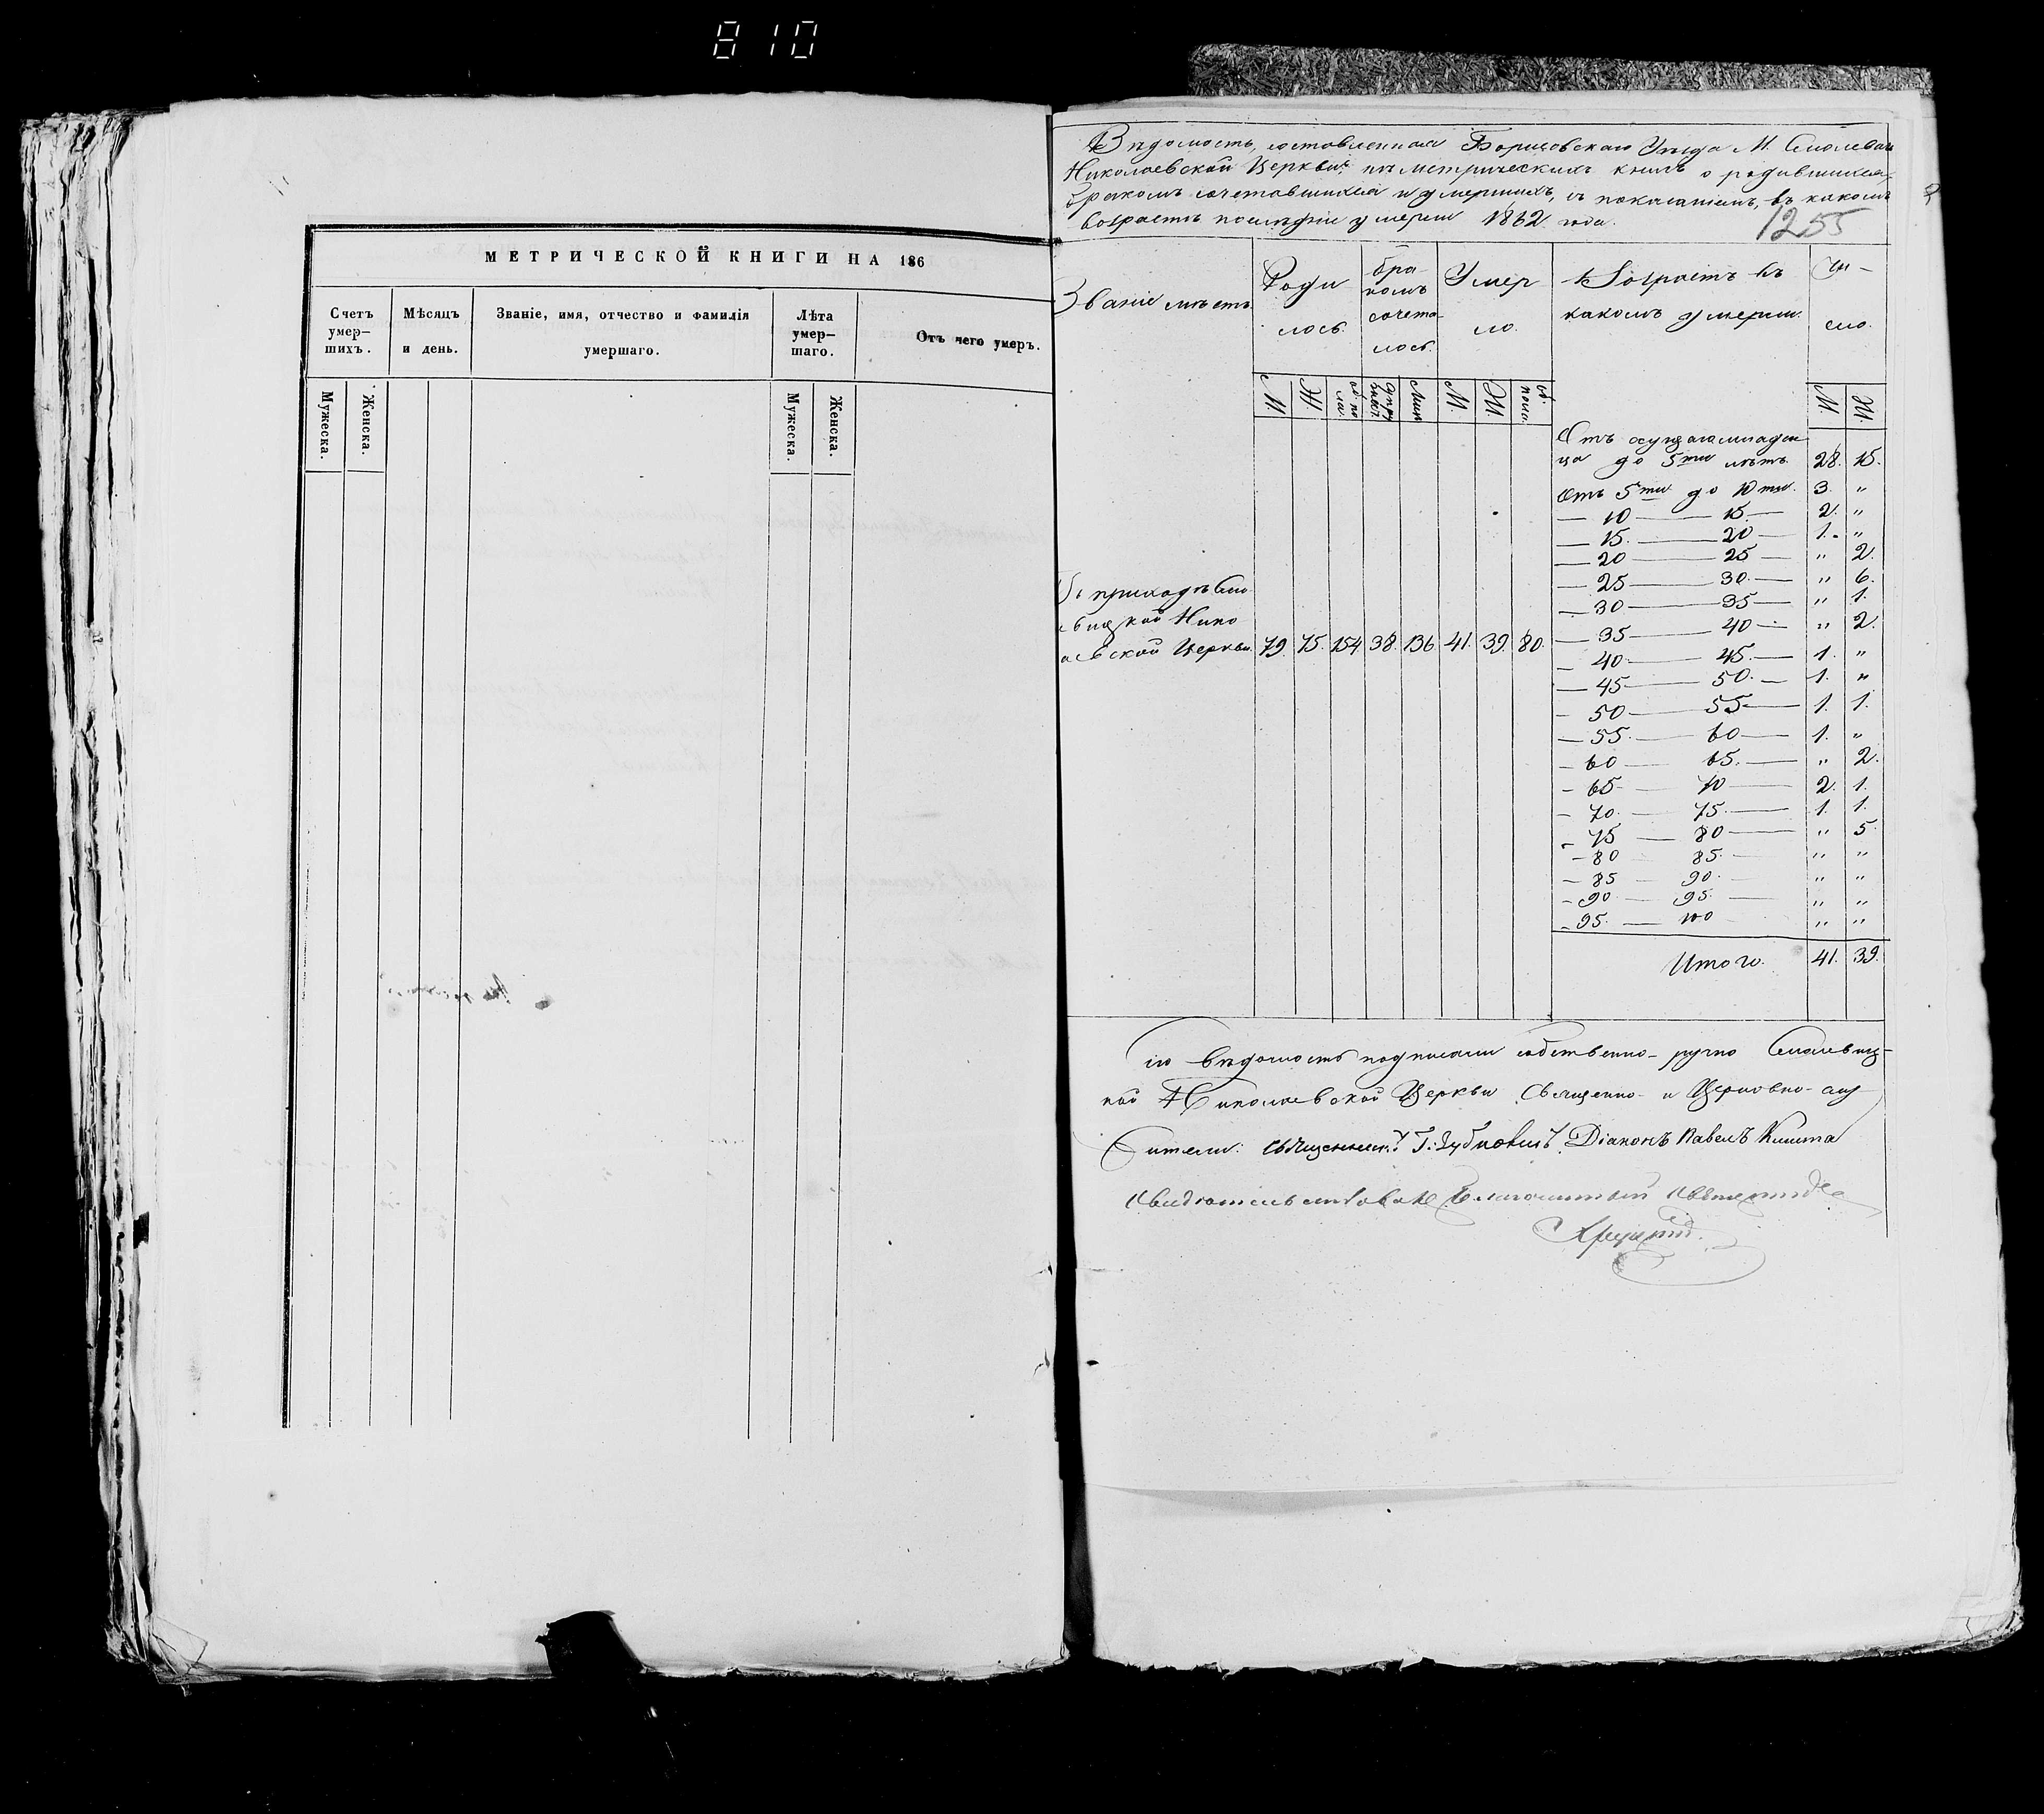 810
МЕТРИЧЕСКОЙ КНИГИ НА 186
Счетъ умер—шихъ.
Мѣсяцъ и день.
Званіе, имя, отчество и фамилія умершаго.
Лѣта умер—шаго.
Отъ чего умеръ.
Мужеска.
Женска.
Мужеска.
Женска.
Вѣдомость, составленная Борисовскаго Уѣзда М. Смолевич
Николаевской Церкви, изъ метрическихъ книгъ о родившихся,
бракомъ сочетавшихся и умершихъ, съ показаніемъ, въ какомъ
возрастѣ послѣдніе умерли 1862 года.
1255
Званіе мѣстъ.
Родилось.
бракомъ сочеталось.
Умерло.
Возрастъ въ какомъ умерли.
Число.
М. Ж. об. пола. супружествъ. Лицъ М. Ж. об. пола. М. Ж.
Отъ сущаго младен
ца до 5ти лѣтъ. 28. 15.
Отъ 5ти до 10ти. 3. "
— 10 — 15. — 2. "
— 15. — 20 — 1. "
— 20 — 25 — " 2.
— 25 — 30. — " 6.
— 30 — 35 — " 1.
— 35 — 40 — " 2.
— 40 — 45. — 1. "
— 45 — 50. — 1. "
— 50 — 55 — 1. 1.
— 55. — 60 — 1. "
— 60 — 65. — " 2.
— 65 — 70 — 2. 1.
— 70. — 75. — 1. 1.
— 75 — 80 — " 5.
— 80 — 85. — " "
— 85 — 90. — " "
— 90 — 95. — " "
— 95. — 100 — " "
Итого. 41. 39.
приходѣ Смо
вицкой Нико
аевской Церкви 79. 75. 154 38. 136 41. 39. 80.
Сію вѣдомость подписали собственно-ручно Смолевиц-
кой Николаевской Церкви Священно- и Церковно-слу
жители: Священникъ Г. Зубковичъ. Діаконъ Павелъ Книта
Свидѣтельствовалъ Благочинный